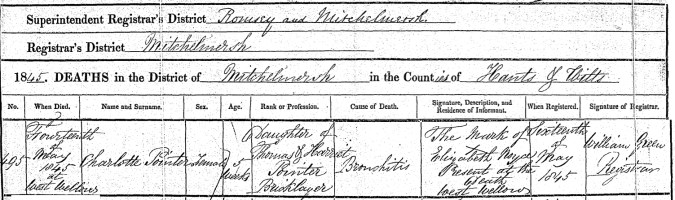 Superintendent Registrar's District Romsey and Mitchelmersh.
Registrar's District Mitchelmersh
1845. DEATHS in the District of Mitchelmersh in the Counties of Hants & Wilts
No. When Died. Name and Surname. Sex. Age. Rank or Profession. Cause of Death. Signature, Description, and Residence of Informant. When Registered. Signature of Registrar.
495
Fourteenth
of
May
1845
at
West Wellow
Charlotte Pointer
Female
5
Weeks
Daughter of
Thomas & Harriet
Pointer
Bricklayer
Bronchitis
The Mark of
Elizabeth
Present at the
death
West Wellow
Sixteenth
of
May
1845
William Green
Registrar